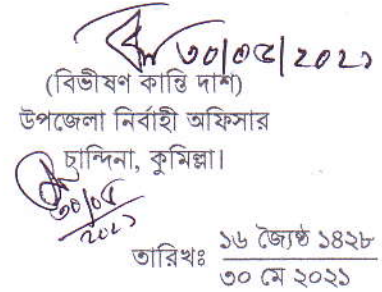 ৩০/০৫/২০২১
(বিভীষণ কান্তি দাশ)
উপজেলা নির্বাহী অফিসার
চান্দিনা, কুমিল্লা।
৩০/০৫
২০২১
তারিখঃ ১৬ জ্যৈষ্ঠ ১৪২৮
৩০ মে ২০২১